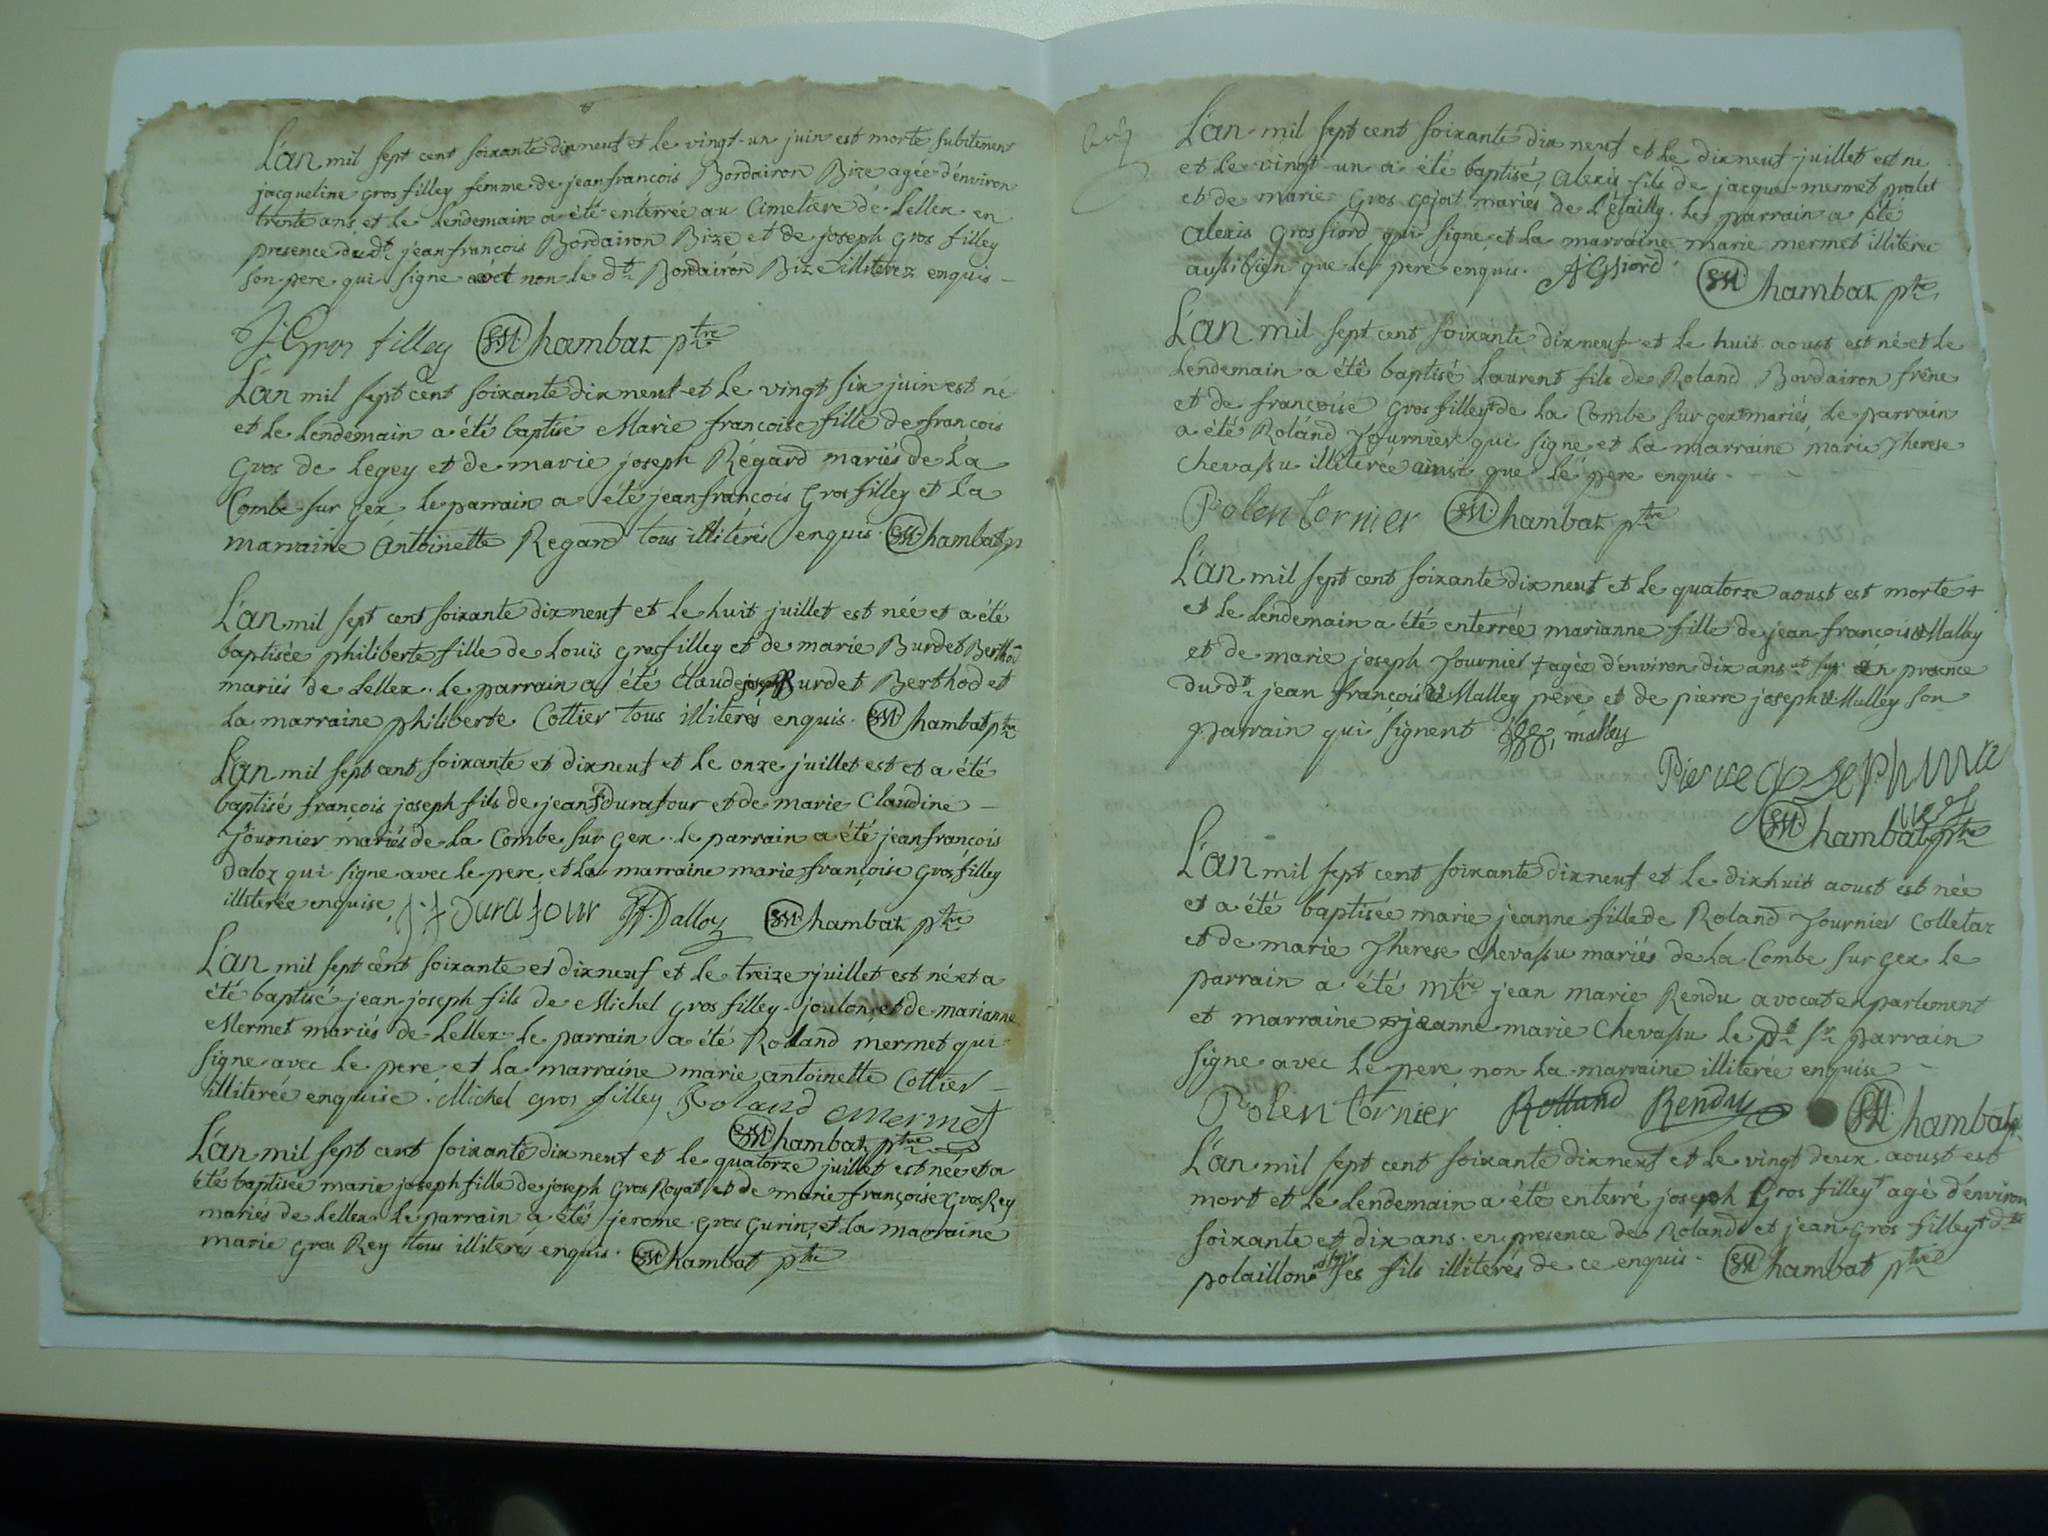 L'an mil sept cent soixante dixneuf et le vingt-un juin est morte subitement
jacqueline gros filley femme de jean francois Bordairon Bize agée d'énviron
trente ans, et le lendemain a été enterrée au Cimetiere de Lellex en
presence du dt. jean francois Bordairon Bize et de joseph gros filley
son pere qui signe et non le dt. Bordairon Bize illiterez enquis -
J. Gros filley Chambaz ptre
L'an mil sept cent soixante dixneuf et le vingt six juin est né
et le lendemain a été baptisé Marie francoise fille de francois
gros de legey et de marie joseph Régard mariés de la
Combe sur gex le parrain a été jean francois grosfilley et la
marraine Antoinette Regard tous illitérés enquis. Chambaz p
L'an mil sept cent soixante dixneuf et le huit juillet est née et a été
baptisée philiberte fille de Louis grosfilley et de marie Burdet Berthod
mariés de Lellex. le parrain a été claude joseph Burdet Berthod et
la marraine philiberte Cottier tous illiterés enquis. Chambaz ptre
L'an mil sept cent soixante et dixneuf et le onze juillet est et a été
baptisé françois joseph fils de jean f durafour et de marie Claudine -
Journier mariés de la Combe sur gex. le parrain a été jean francois
daloz qui signe avec le pere et la marraine marie françoise grosfilley
illiterée enquise J. f Durafour JF. Dalloz Chambaz ptre
L'an mil sept cent soixante et dixneuf et le treize juillet est né et a
été baptisé jean joseph fils de Michel gros filley joulon et de marianne
Mermet mariés de Lellex le parrain a été Rolland mermet qui
signe avec le pere et la marraine marie antoinette Cottier -
illitérée enquise. Michel gros filley Roland mermet
Chambaz ptre
L'an mil sept cent soixante dixneuf et le quatorze juillet est née et a
été baptisée marie joseph fille de joseph Gros Royat et de marie françoise gros Rey
mariés de Lellex le parrain a été jerome gros gurin, et la marraine
marie gros Rey tous illiterés enquis. Chambaz ptre
L'an mil sept cent soixante dixneuf et le dixneuf juillet est ne
et le vingt-un a été baptisé, Alexis fils de jacque mermet pralet
et de marie gros cojat mariés de l'élailly. le parrain a été
Alexis grosfiord qui signe et la marraine marie mermet illiterée
aussi bien que le pere enquis. A Gfiord
Chambaz ptre
L'an mil sept cent soixante dixneuf et le huit aoust est né et le
lendemain a été baptisé Laurent fils de Roland Bordairon frêne
et de françoise grosfilley de la Combe sur gex mariés, le parrain
a été Roland Journier qui signe et la marraine marie Therese
chevassu illitérée ainsi que le pere enquis.
Rolen Cornier Chambaz ptre
L'an mil sept cent soixante dixneuf et le quatorze aoust est morte +
et le lendemain a été enterrée marianne fille de jean francois Malley
et de marie joseph Journier + agée d'environ dix ans en presence
du dt. jean françois Malley pere et de pierre joseph Malley son
parrain qui signent malley
Pierre joseph
Chambaz ptre
L'an mil sept cent soixante dixneuf et le dixhuit aoust est née
et a été baptisée marie jeanne fille de Roland Journier Colletaz
et de marie Therese chevassu mariés de la Combe sur gex le
parrain a été mtre jean marie Rendu avocat en parlement
et marraine jeanne marie Chevassu le dt. sr. parrain
signe avec le pere non la marraine illitérée enquise -
Rolen Cornier Rolland Rendu Chambaz
L'an mil sept cent soixante dixneuf et le vingt deux aoust est
mort et le lendemain a été enterré joseph Gros filley + agé d'énviron
soixante et dix ans. en presence de Roland et jean gros filley + dte
polaillon ses fils illiterés de ce enquis. Chambaz ptre